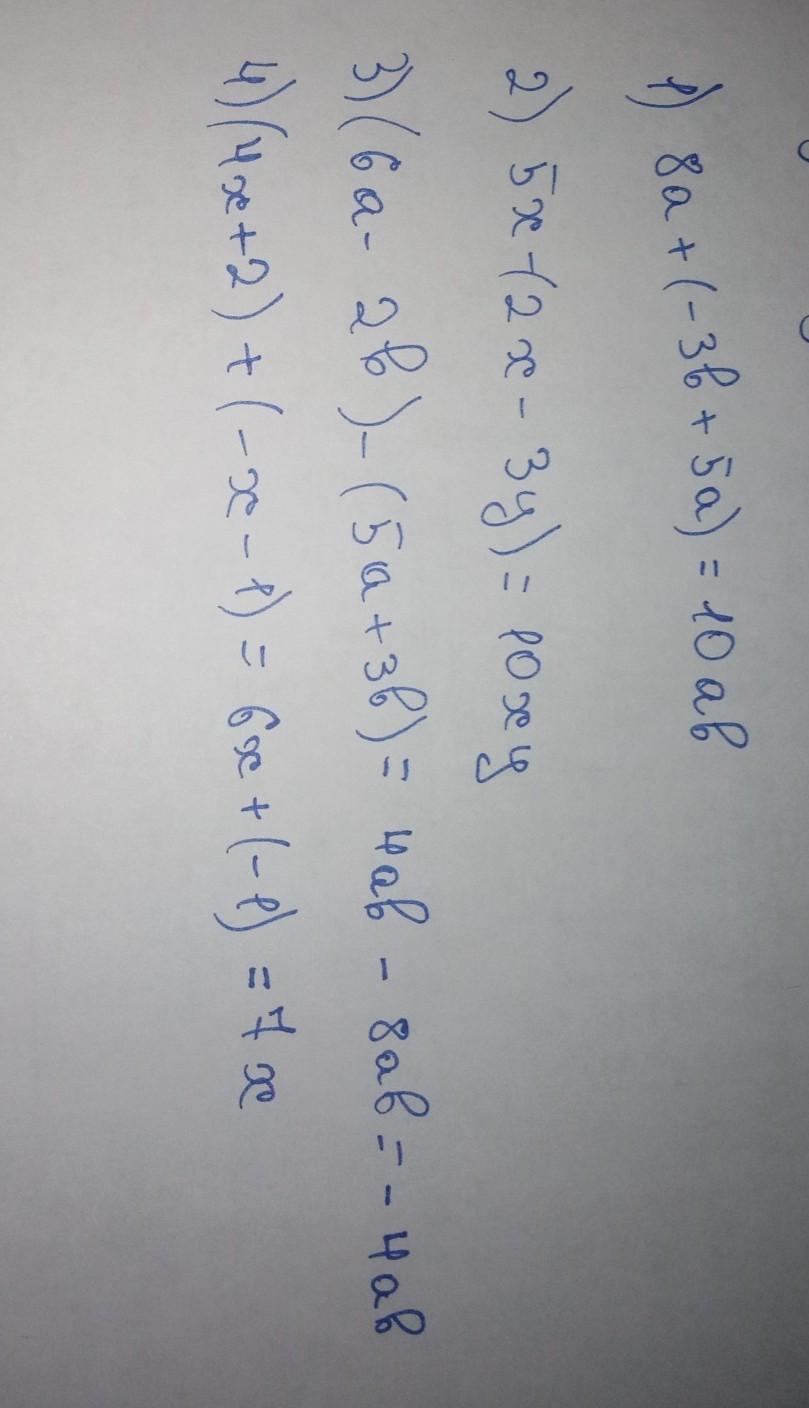 1) 8a + (-3b + 5a) = 10ab
2) 5x - (2x - 3y) = 10xy
3) (6a - 2b) - (5a + 3b) = 4ab - 8ab = -4ab
4) (4x + 2) + (-x - 1) = 6x + (-1) = 7x